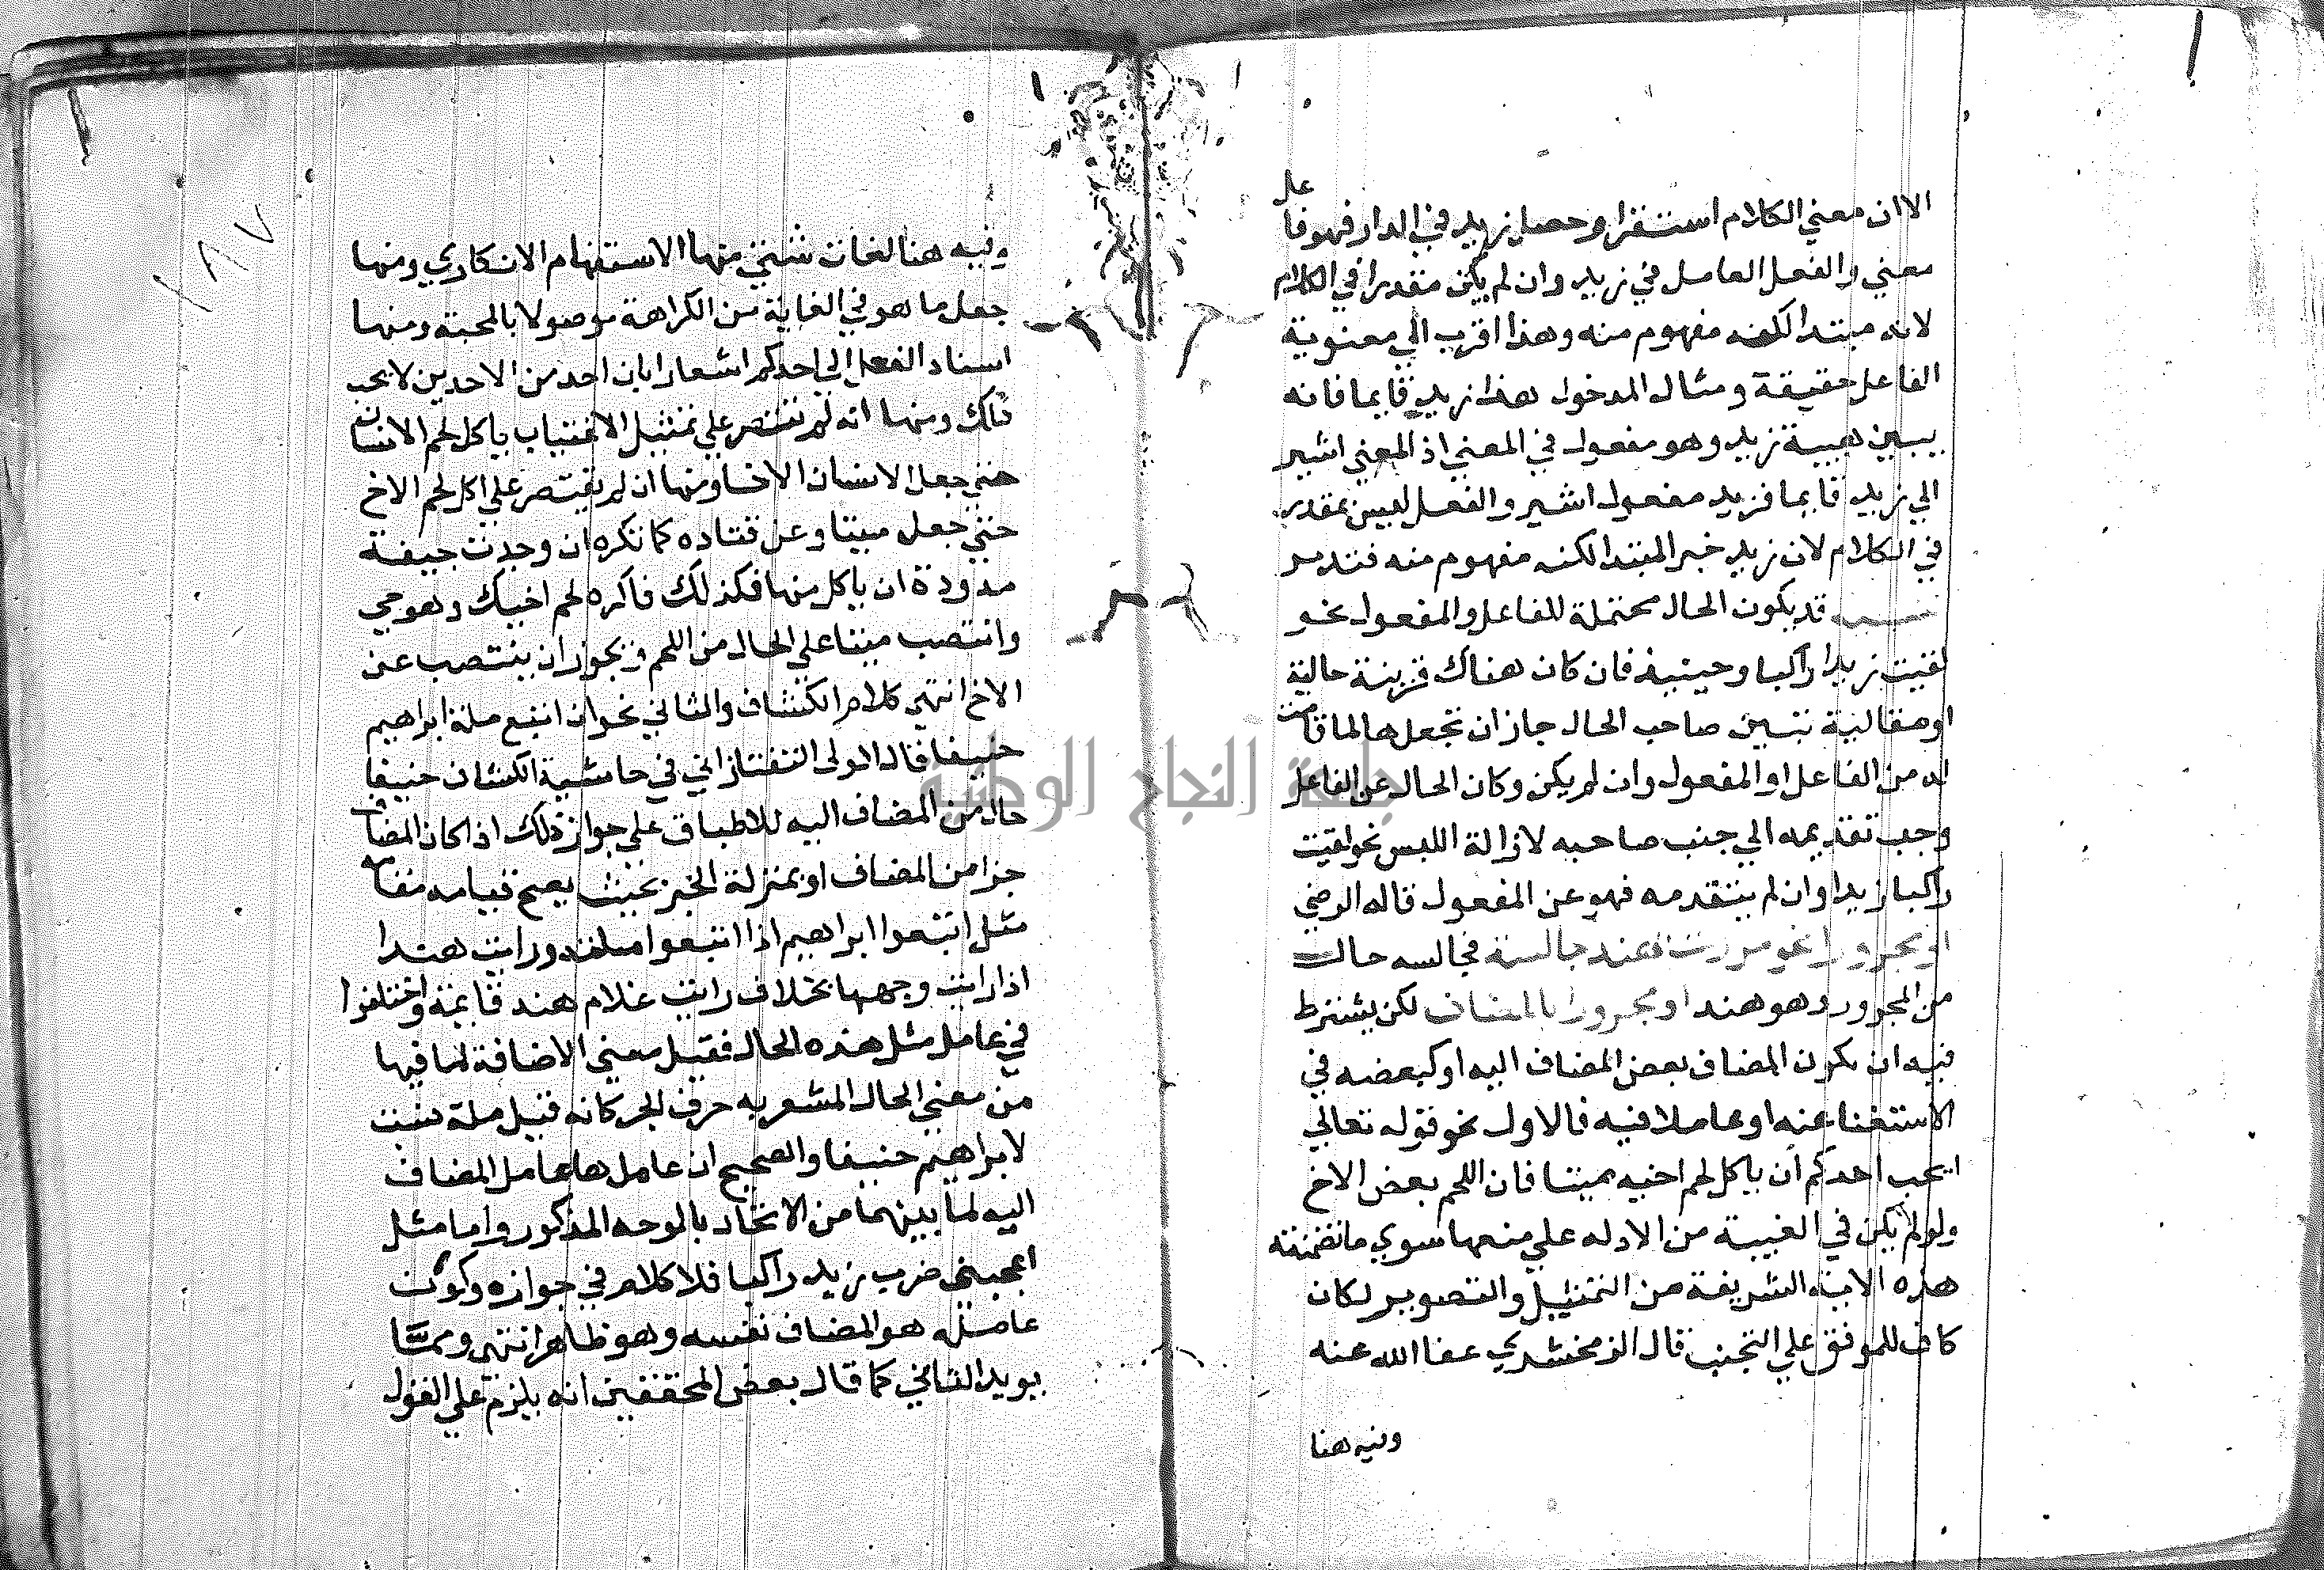 الا ان معني الكلام استقرا وحصل زيد في الدار فهو فاعل
معني والفعل العامل في زيد وان لم يكن مقدرا في الكلام
لانه مبتدا لكنه مفهوم منه وهذا اقرب الي معنوية
الفاعل حقيقة ومثال المدخول هذا زيد قايما فانه
يبين هيية زيد وهو مفعول في المعني اذ المعني اشير
الي زيد قايما فزيد مفعول اشير والفعل ليس بمقدر
في الكلام لان زيد خبر المبتدا لكنه مفهوم منه فتدبر
قد يكون الحال محتملة للفاعل والمفعول نحو
لقيت زيدا راكبا وحينيذ فان كان هناك قرينة حالية
او مقالية تبين صاحب الحال جاز ان تجعلها لما قامت
له من الفاعل او المفعول وان لم يكن وكان الحال عن الفاعل
وجب تقديمه الي جنب صاحبه لازالة اللبس نحو لقيت
راكبا زيدا وان لم يتقدمه فهو عن المفعول قاله الرضي
او مجرورا نحو مررت بهند جالسة فجالسه حال
من المجرور وهو هند او مجرورا بالمضاف لكن يشترط
فيه ان يكون المضاف بعض المضاف اليه او كبعضه في
الاستغنا عنه او عاملا فيه فالاول نحو قوله تعالي
ايحب احدكم ان ياكل لحم اخيه ميتا فان اللحم بعض الاخ
ولو لم يكن في الغيبة من الادله علي منعها سوي ما تضمنته
هذه الاية الشريفة من التمثيل والتصوير لكان
كاف للموفق علي التجنب قال الزمخشري عفا الله عنه
وفيه هنا
١٨٧
وفيه هنا لغات شتي منها الاستفهام الانكاري ومنها
جعل ما هو في الغاية من الكراهة موصولا بالمحبة ومنها
اسناد الفعل الي احدكم اشعارا بان احد من الاحدين لا يحب
ذلك ومنها انه لم يقتصر علي تمثيل الاغتياب باكل لحم الانسان
حتي جعل الانسان الاخا ومنها ان لم يقتصر علي اكل لحم الاخ
حتي جعل ميتا وعن قتاده كما تكره ان وجدت جيفة
مدودة ان ياكل منها فكذلك فاكره لحم اخيك وهو حي
وانتصب ميتا علي الحال من اللحم ويجوز ان ينتصب عن
الاخ انتهي كلام الكشاف والثاني نحو ان اتبع ملة ابراهيم
حنيفا قال المولي التفتازاني في حاشية الكشاف حنيفا
حال من المضاف اليه للاطباق علي جواز ذلك اذا كان المضاف
جزا من المضاف او بمنزلة الخبر بحيث يصح قيامه مقامه
مثل اتبعوا ابراهيم اذا اتبعوا ملته ورايت هندا
اذا رايت وجهها بخلاف رايت غلام هند قايمة واختلفوا
في عامل مثل هذه الحال فقيل معني الاضافة لما فيها
من معني الحال المشعر به حرف الجر كانه قيل ملة تنبت
لابراهيم حنيفا والصحيح ان عاملها عامل المضاف
اليه لما بينهما من الاتحاد بالوجه المذكور واما مثل
اعجبني ضرب زيد راكبا فلا كلام في جوازه وكون
عامله هو المضاف نفسه وهو ظاهر انتهي ومما
يويد الثاني كما قال بعض المحققين انه يلزم علي القول
جامعة النجاح الوطنية